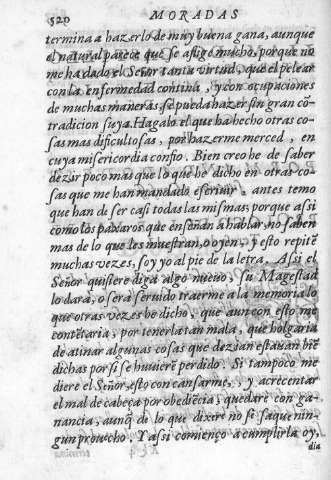 520 MORADAS
termina a hazerlo de muy buena gana, aunque
el natural parece que se aflige mucho, porque no
me ha dado el Señor tanta virtud, que el pelear
con la enfermedad contina, y con ocupaciones
de muchas maneras, se pueda hazer sin gran cõ-
tradicion suya. Hagalo el que ha hecho otras co-
sas mas dificultosas, por hazerme merced, en
cuya misericordia confio. Bien creo he de saber
dezir poco mas que lo que he dicho en otras co-
sas que me han mandado escriuir, antes temo
que han de ser casi todas las mismas, porque assi
como los paxaros que enseñan a hablar, no saben
mas de lo que les muestran, o oyen, y esto repitẽ
muchas vezes, soy yo al pie de la letra. Assi el
Señor quisiere diga algo nueuo, su Magestad
lo dara, o será seruido traerme a la memoria lo
que otras vezes he dicho, que aun con esto me
contẽtaria, por tenerla tan mala, que holgaria
de atinar algunas cosas que dezian estauan biẽ
dichas por si se huuierẽ perdido. Si tampoco me
diere el Señor esto con cansarme, y acrecentar
el mal de cabeça por obediẽcia, quedarè con ga-
nancia, aunq̃ de lo que dixere no se saque nin-
gun prouecho. Y assi comienço a cumplirla oy,
dia